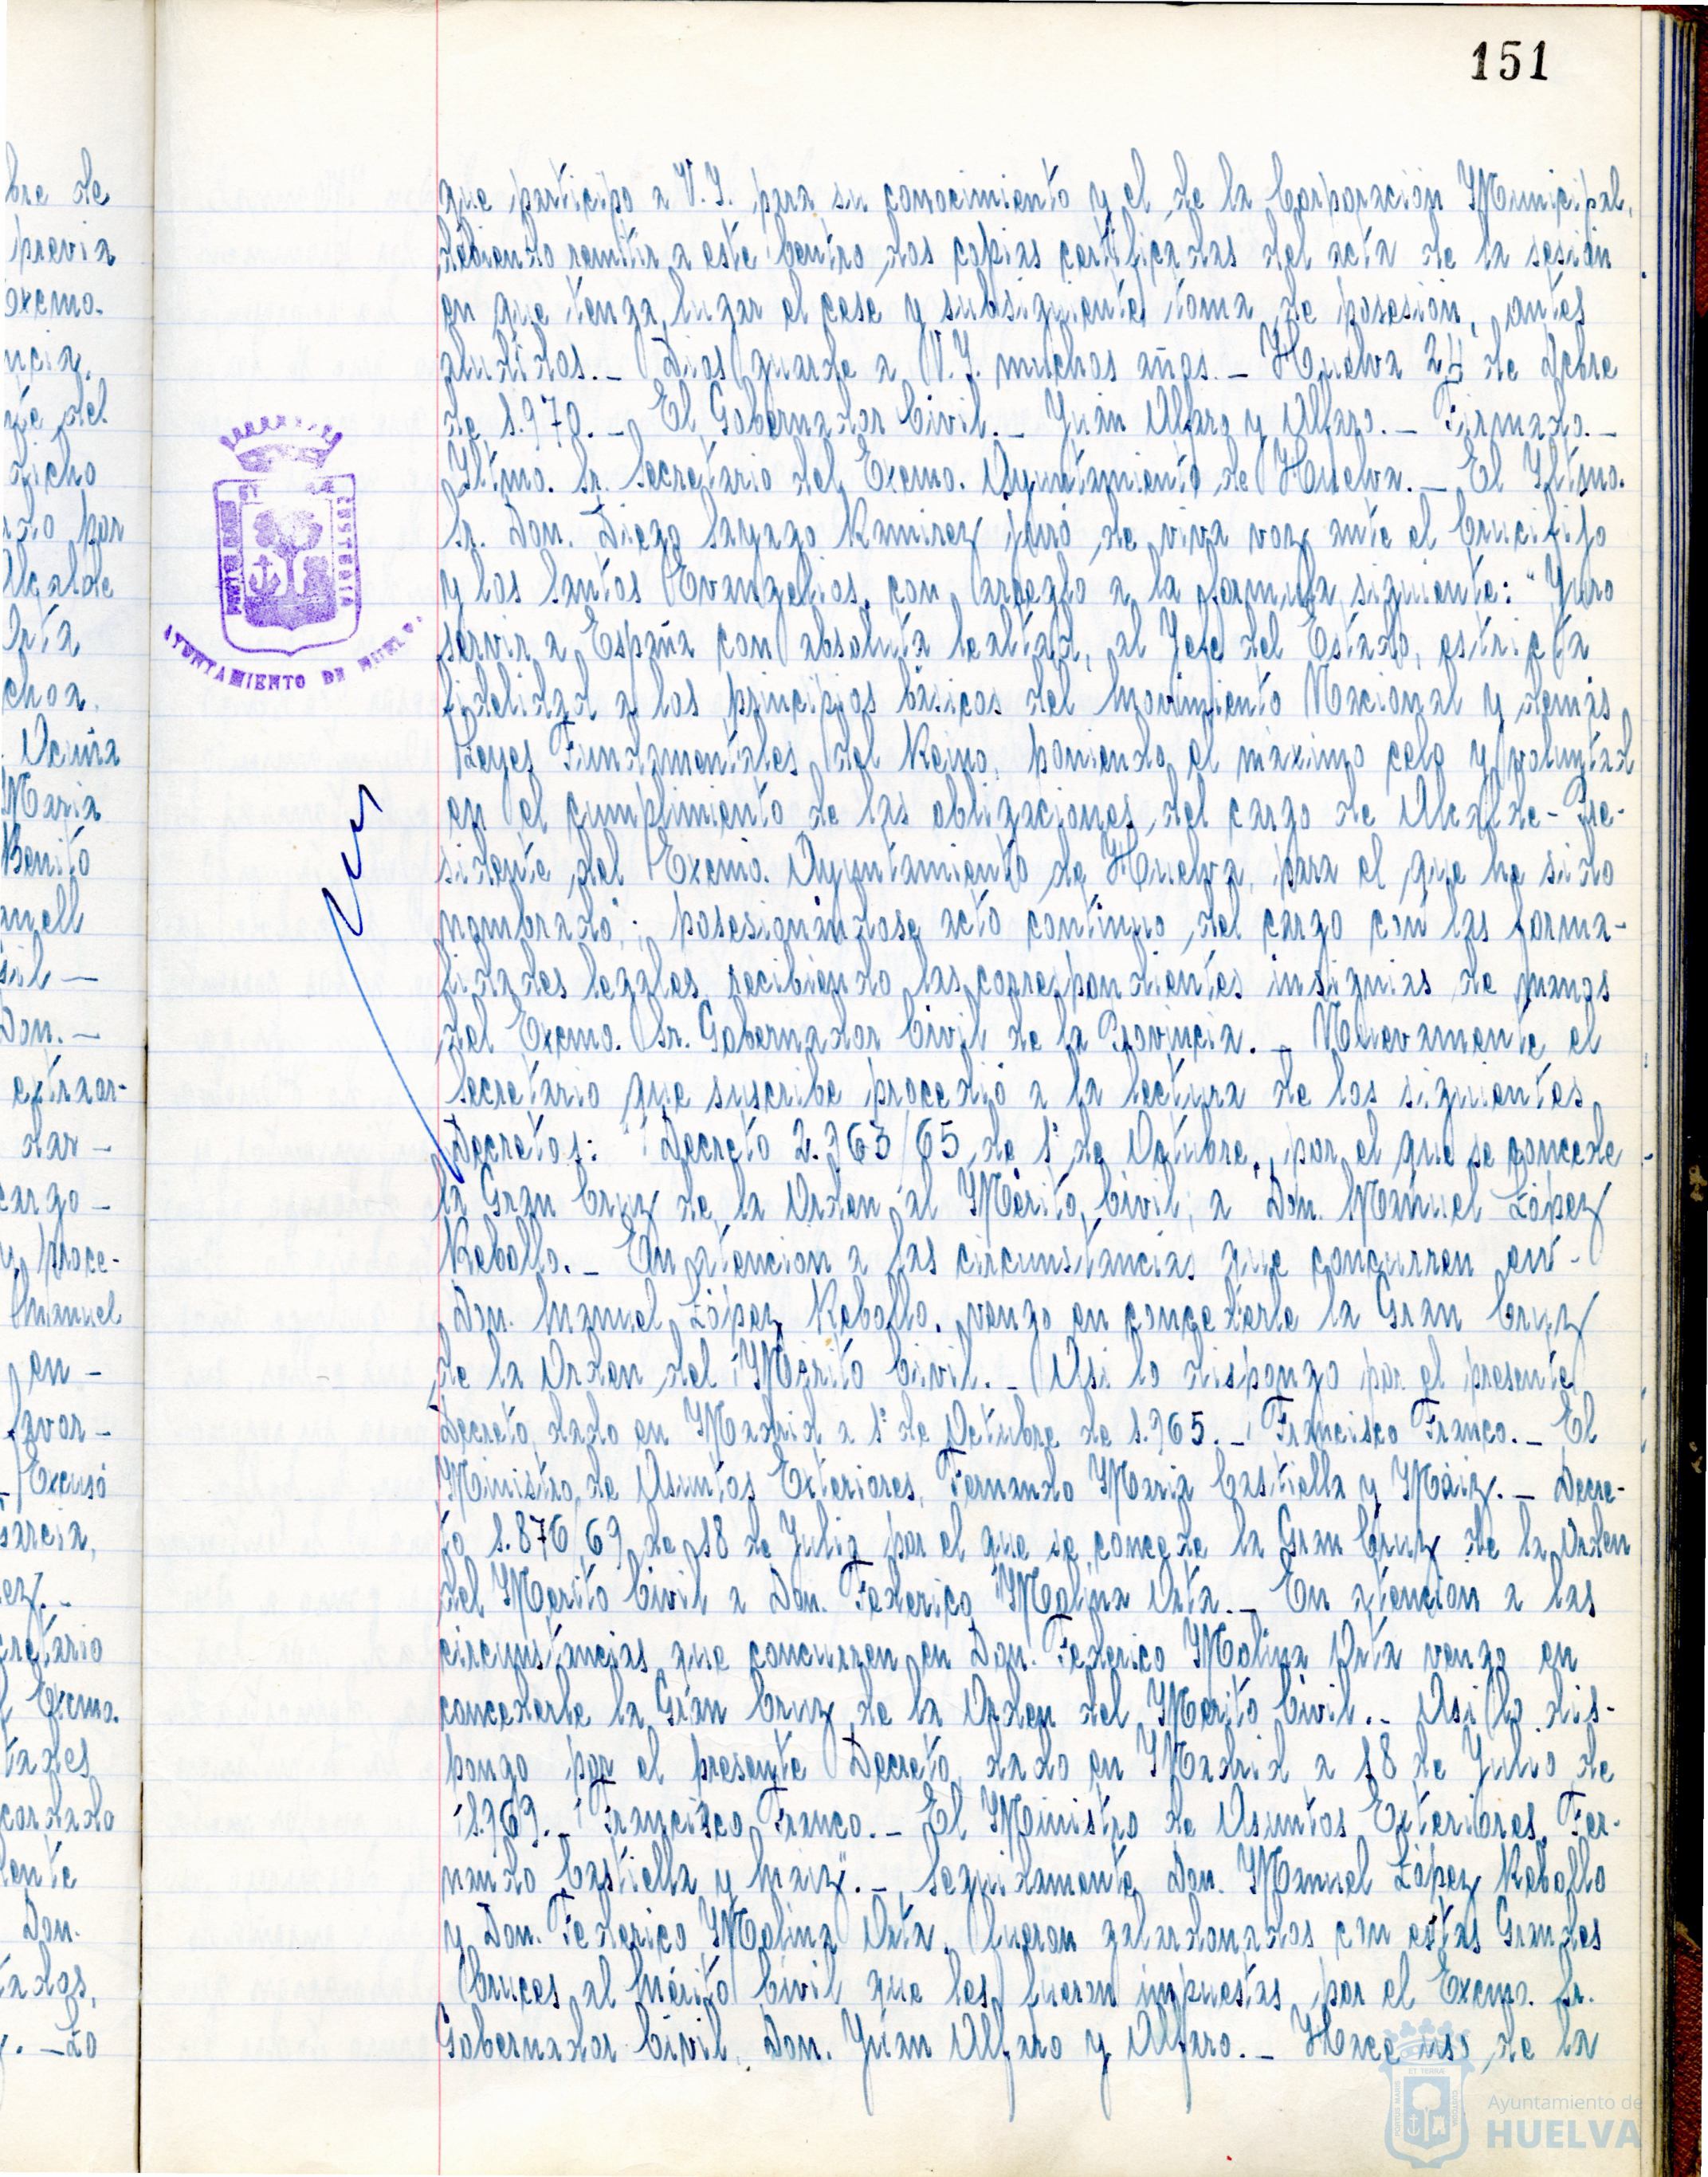 151
que participo a V.I. para su conocimiento y el de la Corporación Municipal,
debiendo remitir a este Centro, dos copias certificadas del acta de la sesión
en que tenga lugar el cese y subsiguiente toma de posesión, antes
aludidos.- Dios guarde a V.I. muchos años.- Huelva 24 de Dcbre
de 1.970.- El Gobernador Civil.- Juan Alfaro y Alfaro.- Firmado.-
Iltmo. Sr. Secretario del Excmo. Ayuntamiento de Huelva.- El Iltmo.
Sr. Don. Diego Sayago Ramirez, juró de viva voz ante el Crucifijo
y los Santos Evangelios, con arreglo a la formula siguiente: "Juro
servir a España con absoluta lealtad, al Jefe del Estado, estricta
fidelidad a los principios básicos del Movimiento Nacional y demás
Leyes Fundamentales del Reino, poniendo el máximo celo y voluntad
en el cumplimiento de las obligaciones del cargo de Alcalde-Pre-
sidente del Excmo. Ayuntamiento de Huelva, para el que he sido
nombrado"; posesionándose acto continuo del cargo con las forma-
lidades legales, recibiendo las correspondientes insignias de manos
del Excmo. Sr. Gobernador Civil de la Provincia.- Nuevamente el
Secretario que suscribe procedió a la lectura de los siguientes
Decretos: "Decreto 2.963/65, de 1º de Octubre, por el que se concede
la Gran Cruz de la Orden al Mérito Civil, a Don. Manuel López
Rebollo.- En atencion a las circunstancias que concurren en-
Don. Manuel López Rebollo, vengo en concederle la Gran Cruz
de la Orden del Mérito Civil.- Asi lo dispongo por el presente
Decreto, dado en Madrid a 1º de Octubre de 1.965.- Francisco Franco.- El
Ministro de Asuntos Exteriores, Fernando Maria Castiella y Máiz.- Decre-
to 1.876/69 de 18 de Julio por el que se concede la Gran Cruz de la Orden
del Merito Civil a Don. Federico Molina Orta.- En atencion a las
circunstancias que concurren en Don. Federico Molina Orta vengo en
concederle la Gran Cruz de la Orden del Mérito Civil.- Asi lo dis-
pongo por el presente Decreto, dado en Madrid a 18 de Julio de
1.969.- Francisco Franco.- El Ministro de Asuntos Exteriores, Fer-
nando Castiella y Maiz".- Seguidamente Don. Manuel López Rebollo
y Don. Federico Molina Orta, fueron galardonados con estas Grandes
Cruces al Mérito Civil que les fueron impuestas por el Excmo. Sr.
Gobernador Civil, Don. Juan Alfaro y Alfaro.- Hace uso de la
AYUNTAMIENTO DE HUELVA
bre de
previa
Excmo.
ncia.
nte del
dicho
ado por
Alcalde
Orta
choa.
Acuña
Maria
Benito
mell
Don.-
extraor-
dar-
cargo-
y proce-
Manuel
en-
favor-
Excusó
Garcia,
ez.-
cretario
Excmo.
tades
cordado
ente
Don.
tados,
.-Lo
Ayuntamiento de
HUELVA